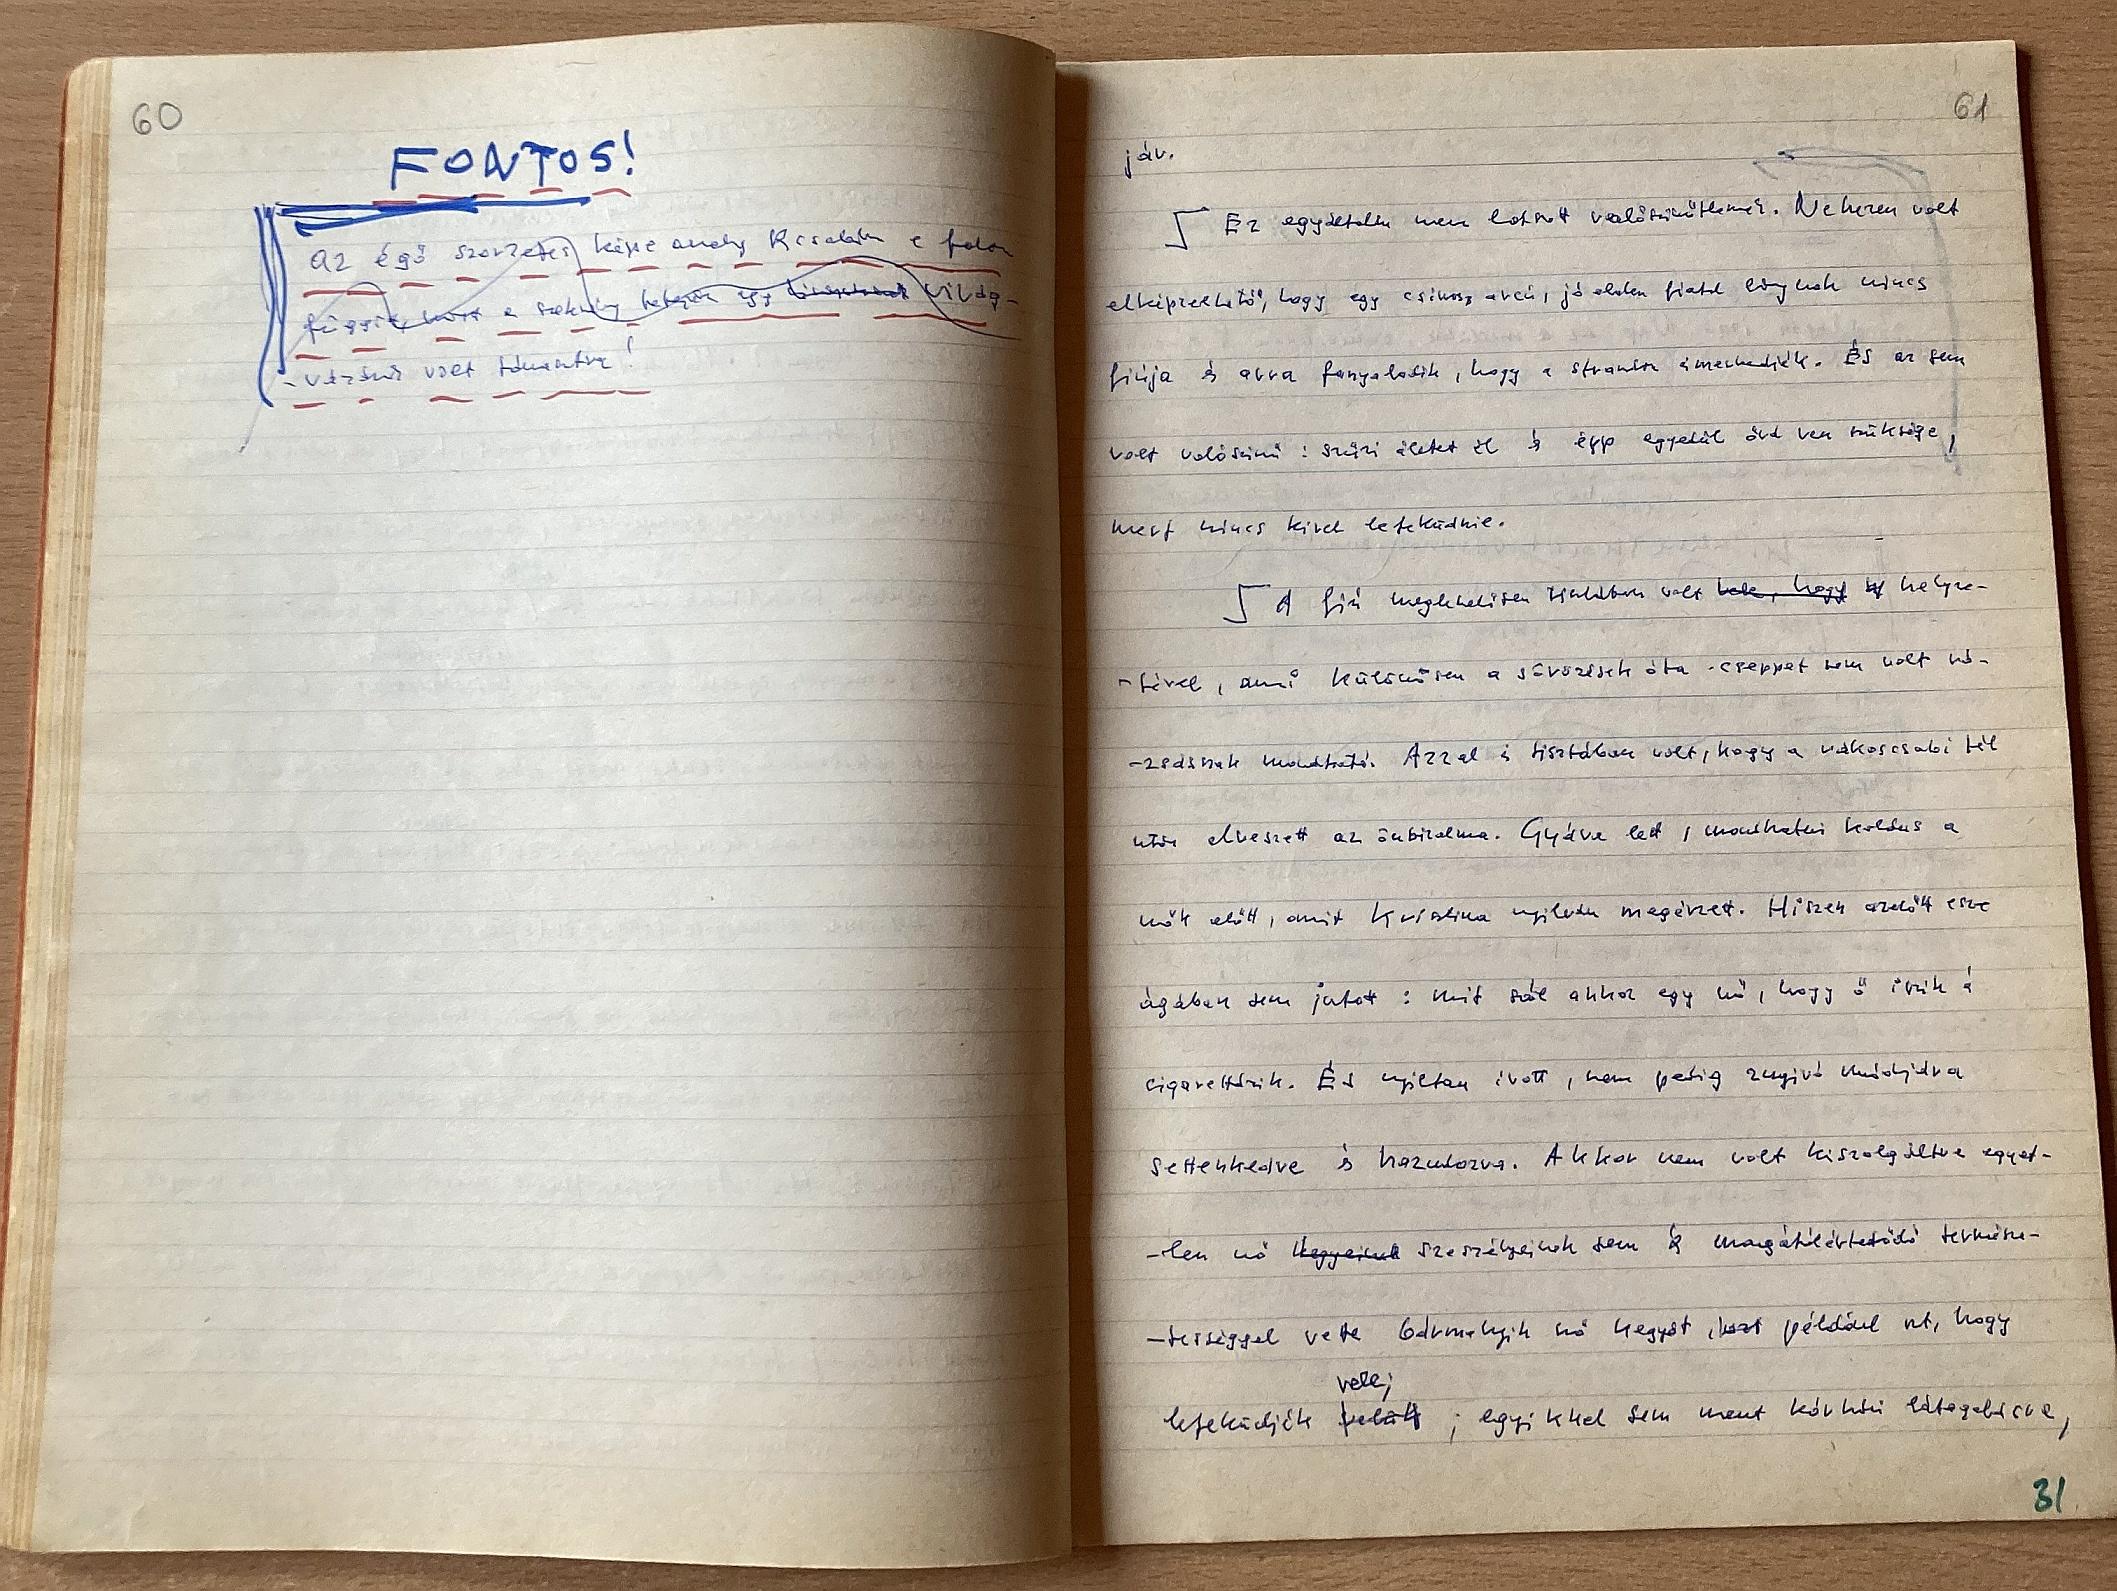 60
FONTOS!
Az égő szerzetes képe amely K családnál a falon
függött, a egy virág-
-vázának volt támasztva!
61
jáv.
Ez egyáltalán nem látszott valószínűtlennek. Nehezen volt
elképzelhető, hogy egy csinos arcú, jó alakú fiatal lánynak nincs
fiúja és arra fanyalodik, hogy a strandon ismerkedjék. És az sem
volt valószínű: szűzi életet él és épp egyedül órá van szüksége,
mert nincs kivel lefeküdnie.
A fiú meglehetősen tisztában volt vele, hogy helyze-
-tével, ami különösen a sörözések óta cseppet sem volt ró-
-zsásnak mondható. Azzal is tisztában volt, hogy a rákoscsabai tél
után elveszett az önbizalma. Gyáva lett, mondhatni koldus a
nők előtt, amit Krisztina nyilván megérzett. Hiszen azelőtt esze
ágában sem jutott: mit szól ahhoz egy nő, hogy ő iszik és
cigarettázik. És nyiltan ivott, nem pedig zugivó módjára
settenkedve és hazudozva. Akkor nem volt kiszolgáltatva egyet-
-len nő kegyeinek szeszélyeinek sem és magátólértetődő természe-
-tességgel vette bármelyik nő kegyét, mint például azt, hogy
vele;
lefeküdjék ; egyikkel sem ment kórházi látogatásra,
31